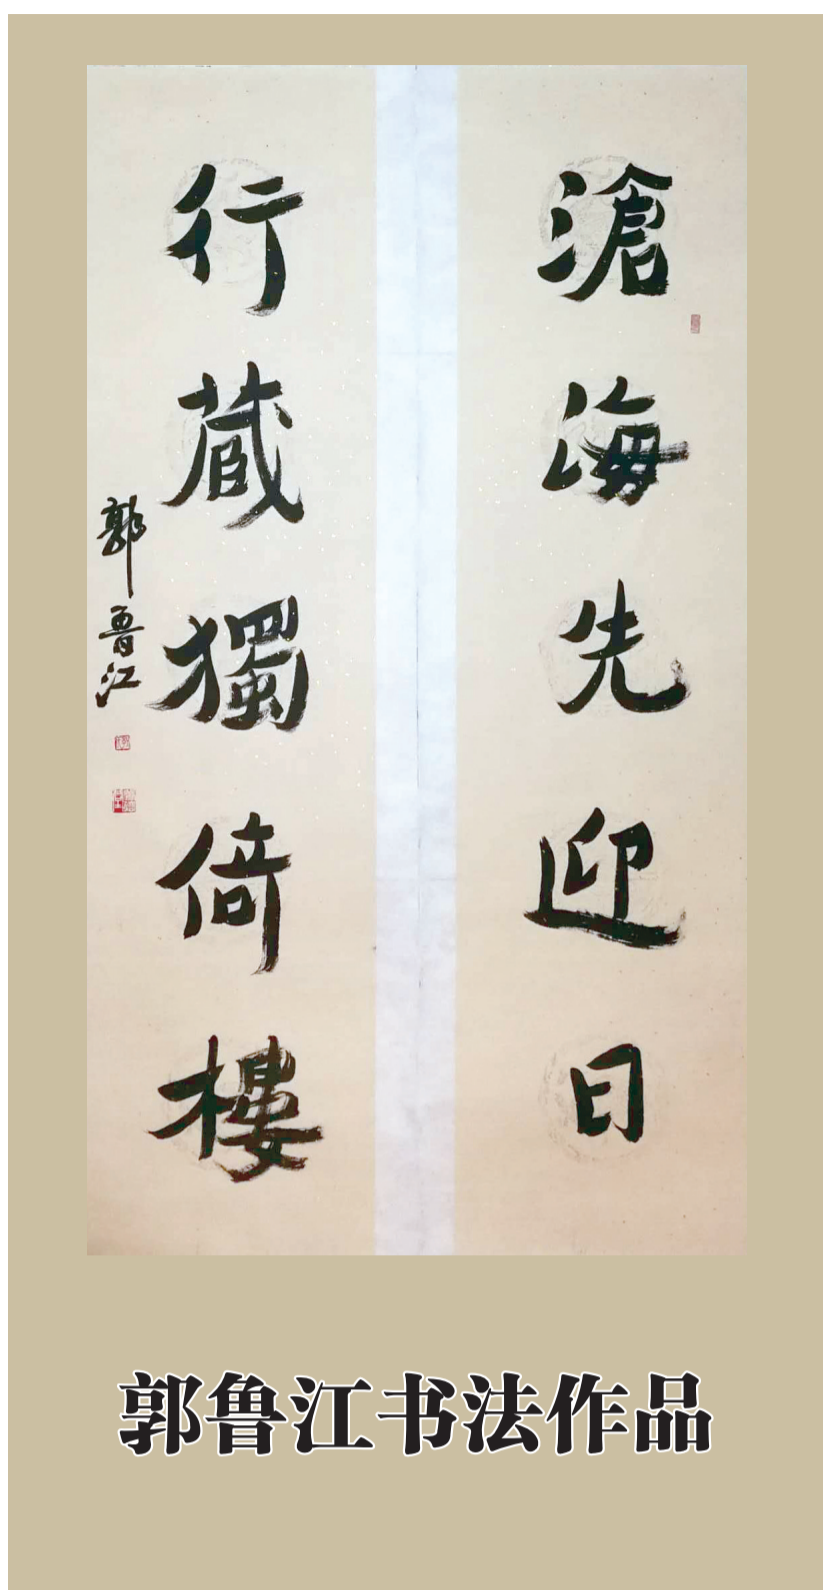 滄海先迎日
行蔵獨倚樓
郭鲁江
郭鲁江书法作品